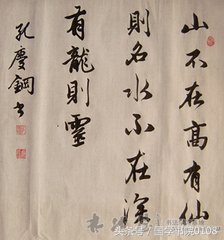 山不在高有仙
則名水不在深
有龍則靈
孔慶鋼书
头条号/国学书院0108